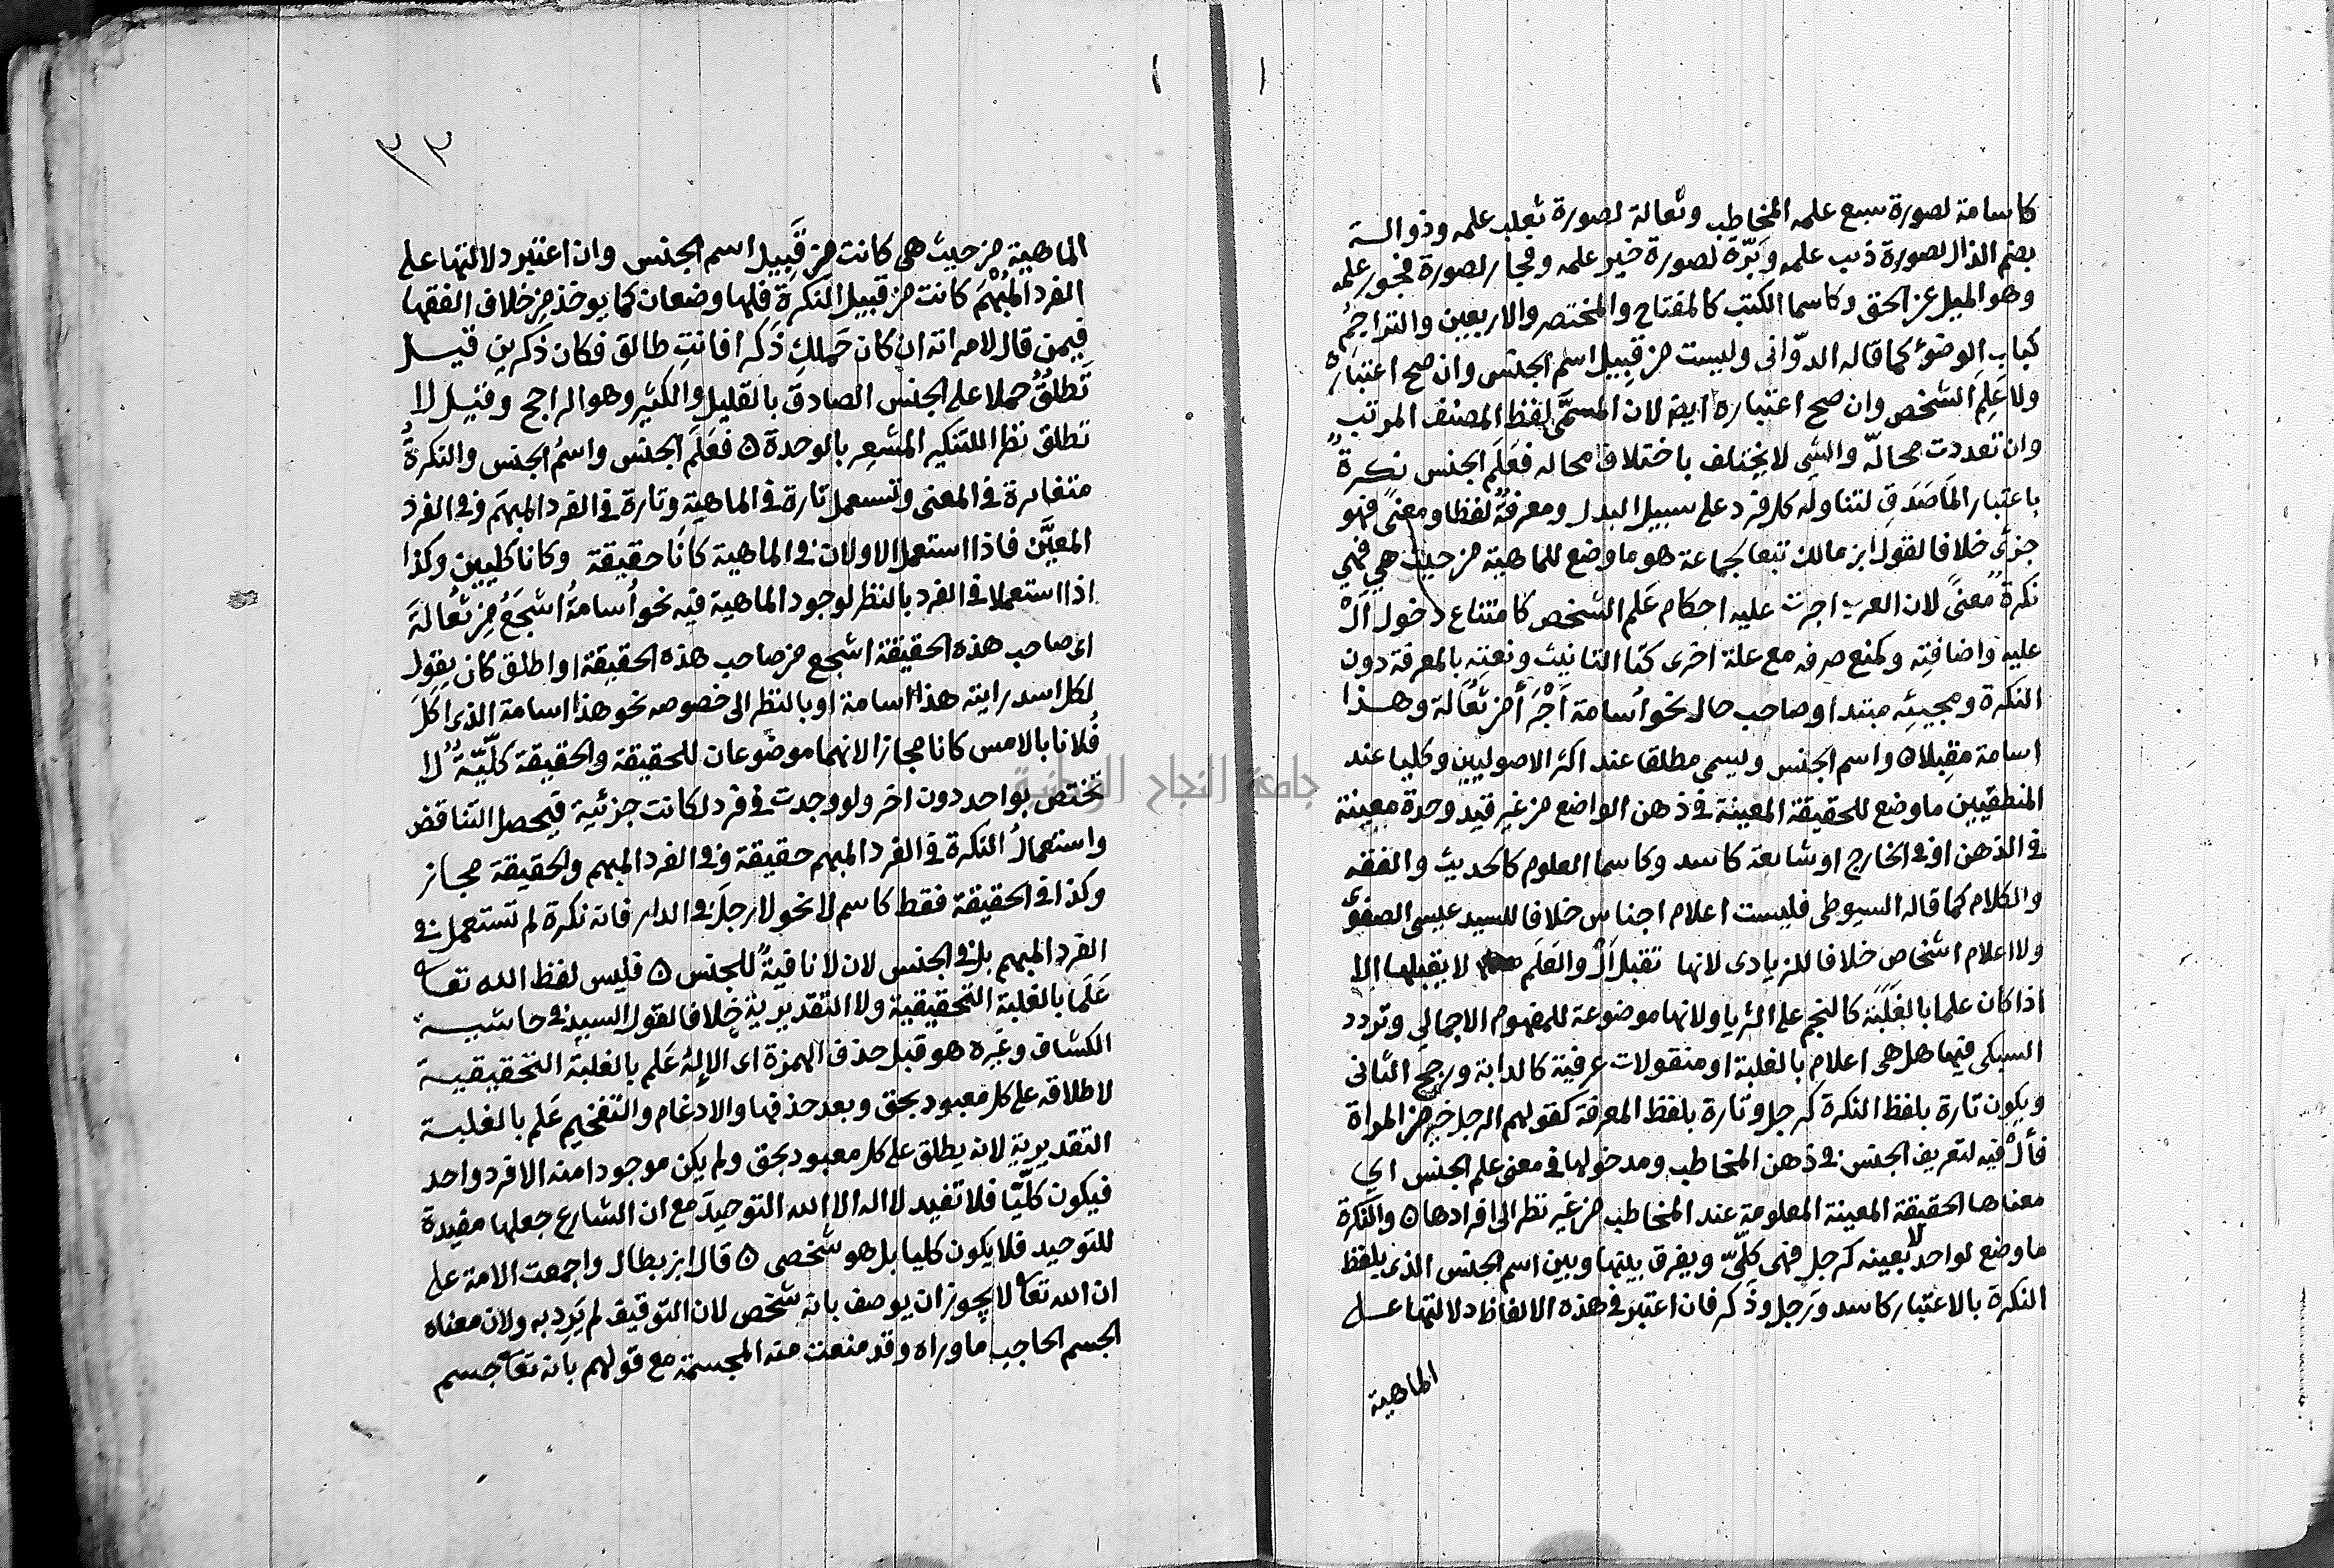 كاسامة لصورة سبع علمه المخاطب وثعالة لصورة ثعلب علمه وذوالة
بضم الذال لصورة ذئب علمه وبَرّة لصورة خير علمه وفجار لصورة فجور علمه
وهو الميل عن الحق وكاسما الكتب كالمفتاح والمختصر والاربعين والتراجم
كباب الوضوء كما قاله الدوّاني وليست من قبيل اسم الجنس وان صح اعتباره
ولا عَلَم الشخص وان صح اعتباره ايضا لان المسمَّى لفظ المصنف المرتب
وان تعددت محالّه والشي لا يختلف باختلاف محاله فعَلَم الجنس نكرةٌ
باعتبار الماصَدَقِ لتناوله كل فرد على سبيل البدل ومعرفةٌ لفظا ومعنًى فهو
جزئى خلافا لقول ابن مالك تبعا لجماعة هو ما وضع للماهية من حيث هي فهي
نكرةٌ معنًى لان العرب اجرت عليه احكام عَلَم الشخص كامتناع دخول اَلْ
عليه واضافتِه وكمنع صرفه مع علة اخرى كتا التانيث ونعتِه بالمعرفة دون
النكرة ومجيئِه مبتدا وصاحب حال نحو اُسامة اَجْرَأُ من ثُعالة وهذا
اسامة مقبلا ٥ واسم الجنس ويسمى مطلقا عند اكثر الاصوليين وكليا عند
المنطقيين ما وضع للحقيقة المعينة في ذهن الواضع من غير قيد وحدة معينة
في الذهن او في الخارج او شايعة كاسد وكاسما العلوم كالحديث والفقه
والكلام كما قاله السيوطى فليست اعلام اجناس خلافا للسيد عيسى الصفوى
ولا اعلام اشخاص خلافا للزيادى لانها تقبل اَلْ والعَلَم لا يقبلها الا
اذا كان علما بالغَلَبَة كالنجم على الثريا ولانها موضوعة للمفهوم الاجمالي وتردد
السبكى فيها هل هى اعلام بالغلبة او منقولات عرفية كالدابة ورجح الثانى
ويكون تارة بلفظ النكرة كرجل وتارة بلفظ المعرفة كقولهم الرجل خير من المراة
فأَلْ فيه لتعريف الجنس في ذهن المخاطب ومدخولها في معنى علم الجنس اي
معناها الحقيقة المعينة المعلومة عند المخاطب من غير نظر الى افرادها ٥ والنكرة
ما وضع لواحد لا بعينه كرجل فهى كلّىّ ويفرق بينها وبين اسم الجنس الذى بلفظ
النكرة بالاعتبار كاسد ورَجل وذَكر فان اعتبر في هذه الالفاظ دلالتها على
الماهية
٣٣
الماهية من حيث هى كانت من قَبِيل اسم الجنس وان اعتبر دلالتها على
الفرد المُبْهَم كانت من قبيل النكرة فلها وضعان كما يوخذ من خلاف الفقها
فيمن قال لامراته ان كان حَملكِ ذَكرا فانتِ طالق فكان ذكرين قيل
تَطلُقُ حملا على الجنس الصادق بالقليل والكثير وهو الراجح وقيل لا
تطلق نظرا للتنكير المشعِر بالوحدة ٥ فعَلَم الجنس واسمُ الجنس والنكرةُ
متغايرة في المعنى وتستعمل تارة في الماهية وتارة في الفرد المبهَم وفي الفرد
المعيَّن فاذا استعمل الاولان في الماهية كانَا حقيقة وكانا كليين وكذا
اذا استعملا في الفرد بالنظر لوجود الماهية فيه نحو اُسامةُ اشجَعُ مِن ثُعالَةَ
اى صاحب هذه الحقيقة اشجع من صاحب هذه الحقيقة او اطلق كان يقول
لكل اسد رايته هذا اسامة او بالنظر الى خصوصه نحو هذا اسامة الذى اكَلَ
فُلانا بالامس كانا مجازا لانهما موضوعان للحقيقة والحقيقة كلّيّةٌ لا
تختص بواحد دون اخر ولو وجدت في فرد لكانت جزئية فيحصل التناقض
واستعمالُ النكرة في الفرد المبهم حقيقة وفي الفرد المبهم والحقيقة مجاز
وكذا في الحقيقة فقط كاسم لا نحو لا رجلَ في الدار فانه نكرة لم تستعمل في
الفرد المبهم بل في الجنس لان لا نافيةٌ للجنس ٥ فليس لفظ الله تعا
عَلَما بالغلبة التحقيقية ولا التقديرية خلافا لقول السيد في حاشية
الكشاف وغيره هو قبل حذف الهمزة اى الإلهُ عَلم بالغلبة التحقيقية
لاطلاقه على كل معبود بحق وبعد حذفها والادغام والتفخيم عَلم بالغلبة
التقديرية لانه يطلق على كل معبود بحق ولم يكن موجودا منه الا فرد واحد
فيكون كلّيّا فلا تفيد لا اله الا الله التوحيدَ مع ان الشارع جعلها مفيدة
للتوحيد فلا يكون كليا بل هو شخصى ٥ قال ابن بطال واجمعت الامة على
ان الله تعا لا يجوز ان يوصف بانه شخص لان التوقيف لم يَرِد به ولان معناه
الجسم الحاجب ما وراه وقد منعت منه المجسمة مع قولهم بانه تعا جسم
جامعة النجاح الوطنية